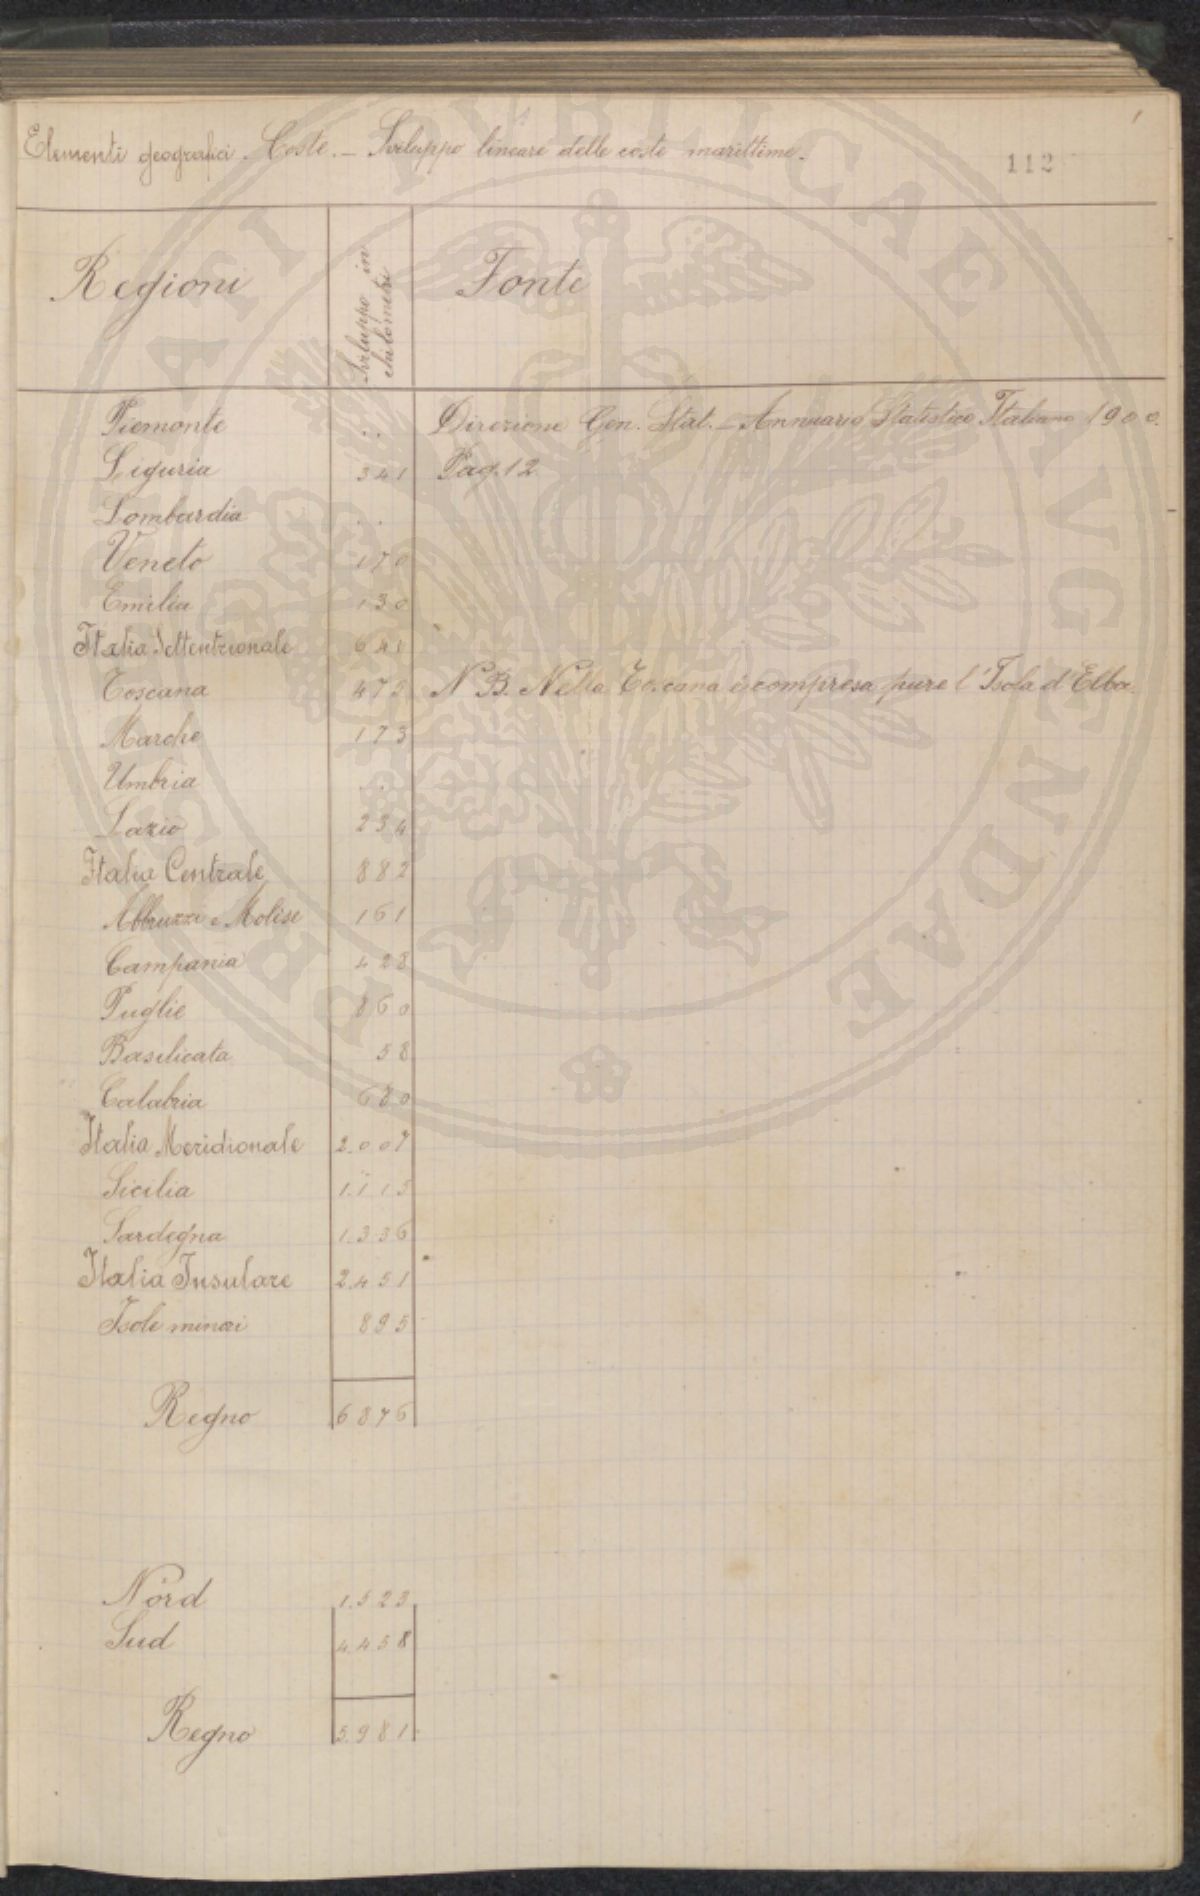 1
Elementi geografici. Coste. - Sviluppo lineare delle coste marittime.
112
Regioni Sviluppo in chilometri Fonte
Piemonte .. Direzione Gen. Stat. - Annuario Statistico Italiano 1900.
Liguria 341 Pag. 12
Lombardia ..
Veneto 170
Emilia 130
Italia Settentrionale 641
Toscana 475 N.B. Nella Toscana è compresa pure l'Isola d'Elba.
Marche 173
Umbria ..
Lazio 234
Italia Centrale 882
Abbruzzi e Molise 161
Campania 428
Puglie 860
Basilicata 58
Calabria 680
Italia Meridionale 2.007
Sicilia 1.115
Sardegna 1.336
Italia Insulare 2.451
Isole minori 895
Regno 6876
Nord 1.523
Sud 4.458
Regno 5.981
PVBLICAE AVGENDAE